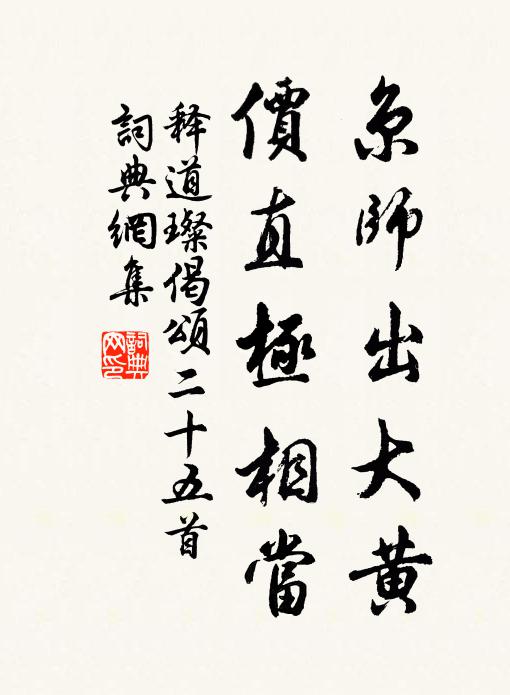 京師出大黄
價直極相當
释道璨偈頌二十五首
詞典網集
詞典
网印